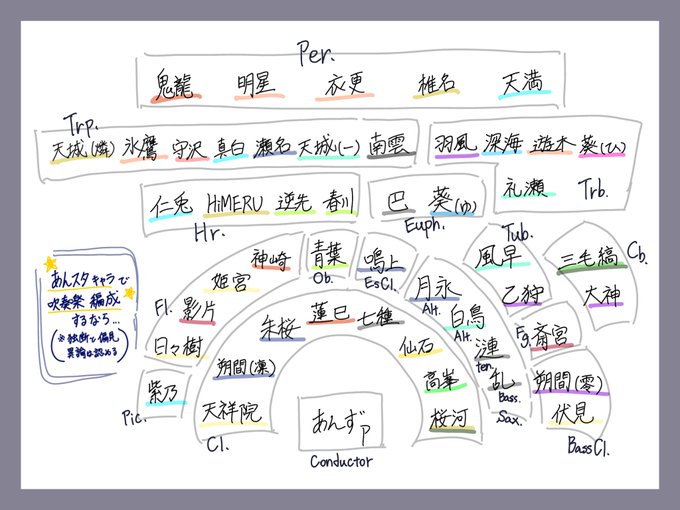 Per.
鬼龍 明星 衣更 椎名 天満
Trp.
天城(燐) 氷鷹 守沢 真白 瀬名 天城(一) 南雲
羽風 深海 遊木 葵(ひ)
礼瀬 Trb.
仁兎 HiMERU 逆先 春川
Hr.
巴 葵(ゆ)
Euph.
Tub.
風早
乙狩
三毛縞 Cb.
大神
あんスタキャラで
吹奏楽編成
するなら...
(※独断と偏見
異論は認める)
Fl.
神崎
姫宮
影片
日々樹
紫乃
Pic.
青葉
Ob.
鳴上
EsCl.
月永
Alt.
白鳥
Alt.
漣
ten.
乱
Bass.
Sax.
Fg. 斎宮
朔間(零)
伏見
Bass Cl.
朱桜 蓮巳 七種
朔間(凛) 仙石
天祥院 高峯
桜河
Cl.
あんずP
Conductor